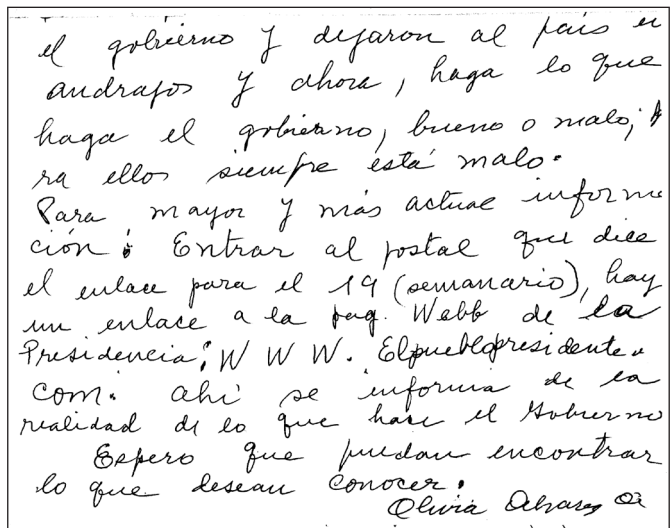 el gobierno y dejaron al país en
andrajos y ahora, haga lo que
haga el gobierno, bueno o malo,
ra ellos siempre está malo.
Para mayor y más actual informa
ción: Entrar al postal que dice
el enlace para el 19 (semanario), hay
un enlace a la pag. Webb de la
Presidencia: W W W. Elpueblopresidente.
com. ahí se informa de la
realidad de lo que hace el Gobierno
Espero que puedan encontrar
lo que desean conocer.
Olivia Alvarez